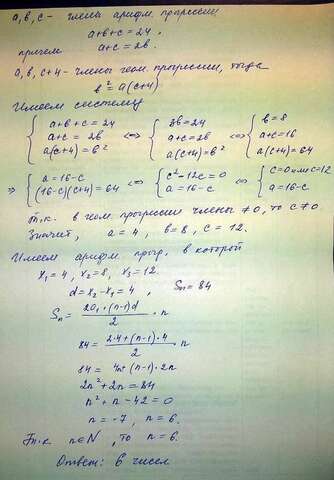 a, b, c - члены арифм. прогрессии
a+b+c = 24 ,
причем a+c = 2b.
a, b, c+4 - члены геом. прогрессии, тогда
b² = a(c+4)
Имеем систему
{ a+b+c = 24
a+c = 2b
a(c+4) = b²
<=> { 3b = 24
a+c = 2b
a(c+4) = b²
<=> { b = 8
a+c = 16
a(c+4) = 64
=> { a = 16-c
(16-c)(c+4) = 64
<=> { c²-12c = 0
a = 16-c
<=> { c = 0 или c = 12
a = 16-c
Т.к. в геом. прогрессии члены ≠ 0, то c ≠ 0
Значит, a = 4, b = 8, c = 12.
Имеем арифм. прогр., в которой
x₁ = 4, x₂ = 8, x₃ = 12.
d = x₂ - x₁ = 4 , Sn = 84
Sn = (2a₁ + (n-1)d)/2 · n
84 = (2·4 + (n-1)·4)/2 · n
84 = 4n + (n-1)·2n
2n² + 2n = 84
n² + n - 42 = 0
n = -7, n = 6.
Т.к. n∈N, то n = 6.
Ответ: 6 чисел